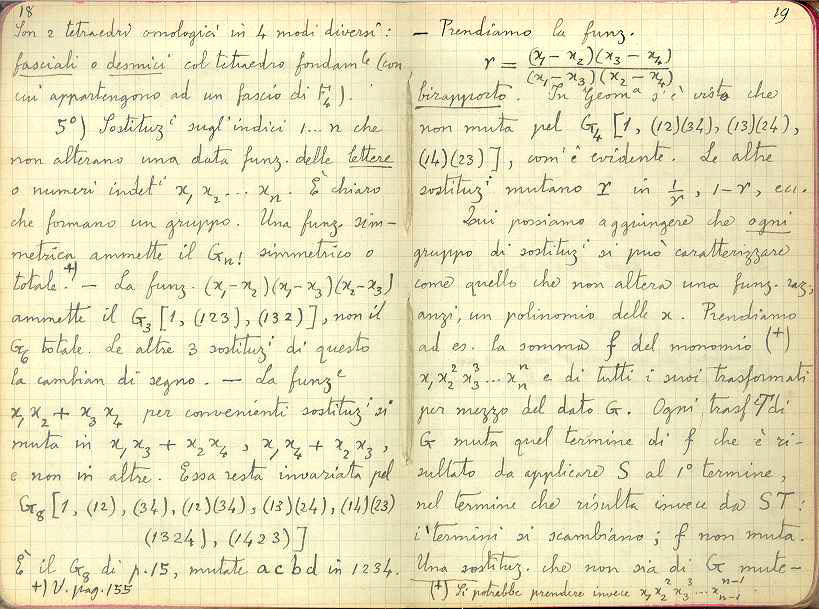 18
Son 2 tetraedri omologici in 4 modi diversi:
fasciali o desmici col tetraedro fondam.le (con
cui appartengono ad un fascio di F₄).
5°) Sostituz.i sugl'indici 1...n che
non alterano una data funz. delle lettere
o numeri indet.i x₁ x₂ ... xₙ. È chiaro
che formano un gruppo. Una funz. sim-
metrica ammette il Gₙ! simmetrico o
totale.+) — La funz. (x₁-x₂)(x₁-x₃)(x₂-x₃)
ammette il G₃ [1, (123), (132)], non il
G₆ totale. Le altre 3 sostituz.i di questo
la cambian di segno. — La funz.e
x₁x₂ + x₃x₄ per convenienti sostituz.i si
muta in x₁x₃ + x₂x₄, x₁x₄ + x₂x₃,
e non in altre. Essa resta invariata pel
G₈ [1, (12), (34), (12)(34), (13)(24), (14)(23)
(1324), (1423)]
È il G₈ di p.15, mutate acbd in 1234.
+) V. pag. 155
19
— Prendiamo la funz.
r = (x₁-x₂)(x₃-x₄) / (x₁-x₃)(x₂-x₄)
birapporto. In Geom.a s'è visto che
non muta pel G₄ [1, (12)(34), (13)(24),
(14)(23)], com'è evidente. Le altre
sostituz.i mutano r in 1/r, 1-r, ecc.
Qui possiamo aggiungere che ogni
gruppo di sostituz.i si può caratterizzare
come quello che non altera una funz. raz;
anzi, un polinomio delle x. Prendiamo
ad es. la somma f del monomio (+)
x₁x₂²x₃³...xₙⁿ e di tutti i suoi trasformati
per mezzo del dato G. Ogni trasf. T di
G muta quel termine di f che è ri-
sultato da applicare S al 1° termine,
nel termine che risulta invece da ST:
i termini si scambiano; f non muta.
Una sostituz. che non sia di G mute-
(+) Si potrebbe prendere invece x₁x₂²x₃³...xₙ₋₁ⁿ⁻¹